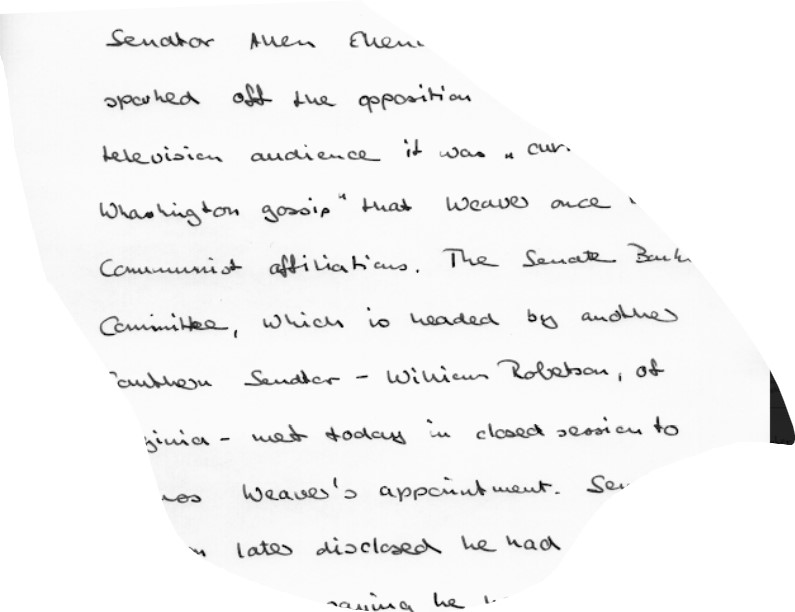 Senator Allen
sparked off the opposition
television audience it was "
Whashington gossip" that Weaver once
Communist affiliations. The Senate
Committee, which is headed by another
Senator - William Robetson, of
- met today in closed session to
Weaver's appointment.
later disclosed he had
saying he